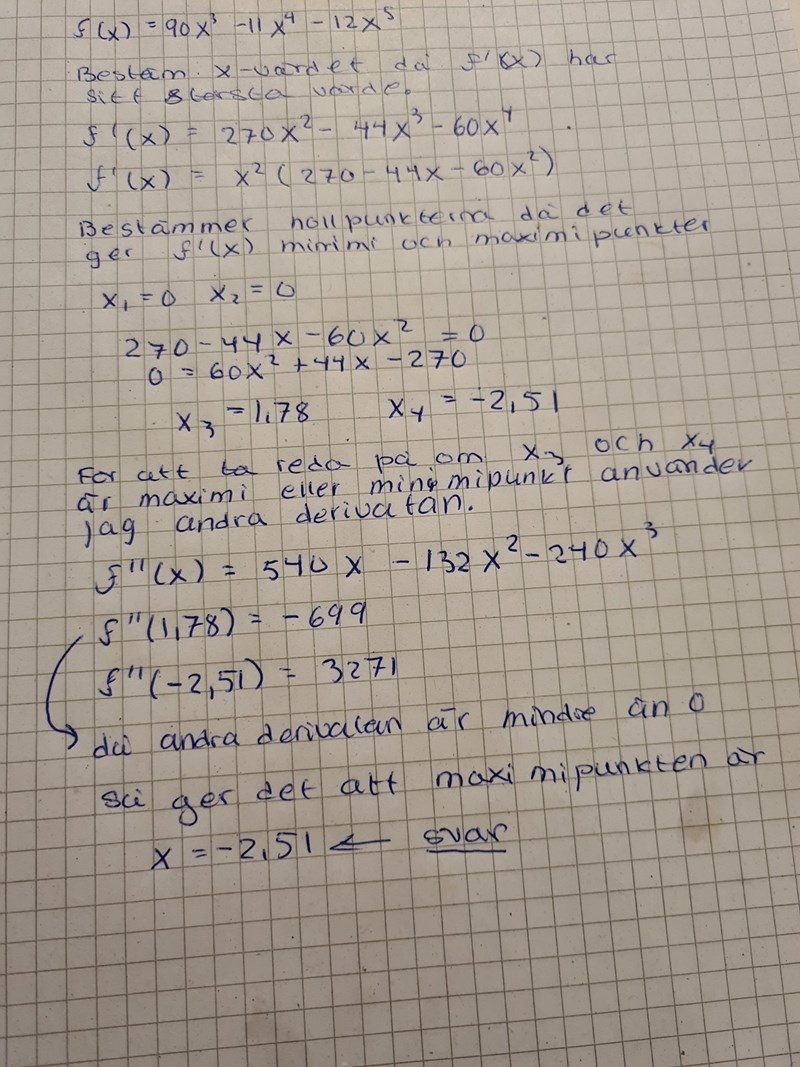 f(x) = 90x³ - 11x⁴ - 12x⁵
Bestäm x-värdet då f'(x) har
sitt största värde.
f'(x) = 270x² - 44x³ - 60x⁴
f'(x) = x² (270 - 44x - 60x²)
Bestämmer nollpunkterna då det
ger f'(x) minimi och maximipunkter
x₁ = 0 x₂ = 0
270 - 44x - 60x² = 0
0 = 60x² + 44x - 270
x₃ = 1,78 x₄ = -2,51
För att ta reda på om x₃ och x₄
är maximi eller minimipunkt använder
jag andra derivatan.
f''(x) = 540x - 132x² - 240x³
f''(1,78) = -699
f''(-2,51) = 3271
då andra derivatan är mindre än 0
så ger det att maximipunkten är
x = -2,51 ← svar